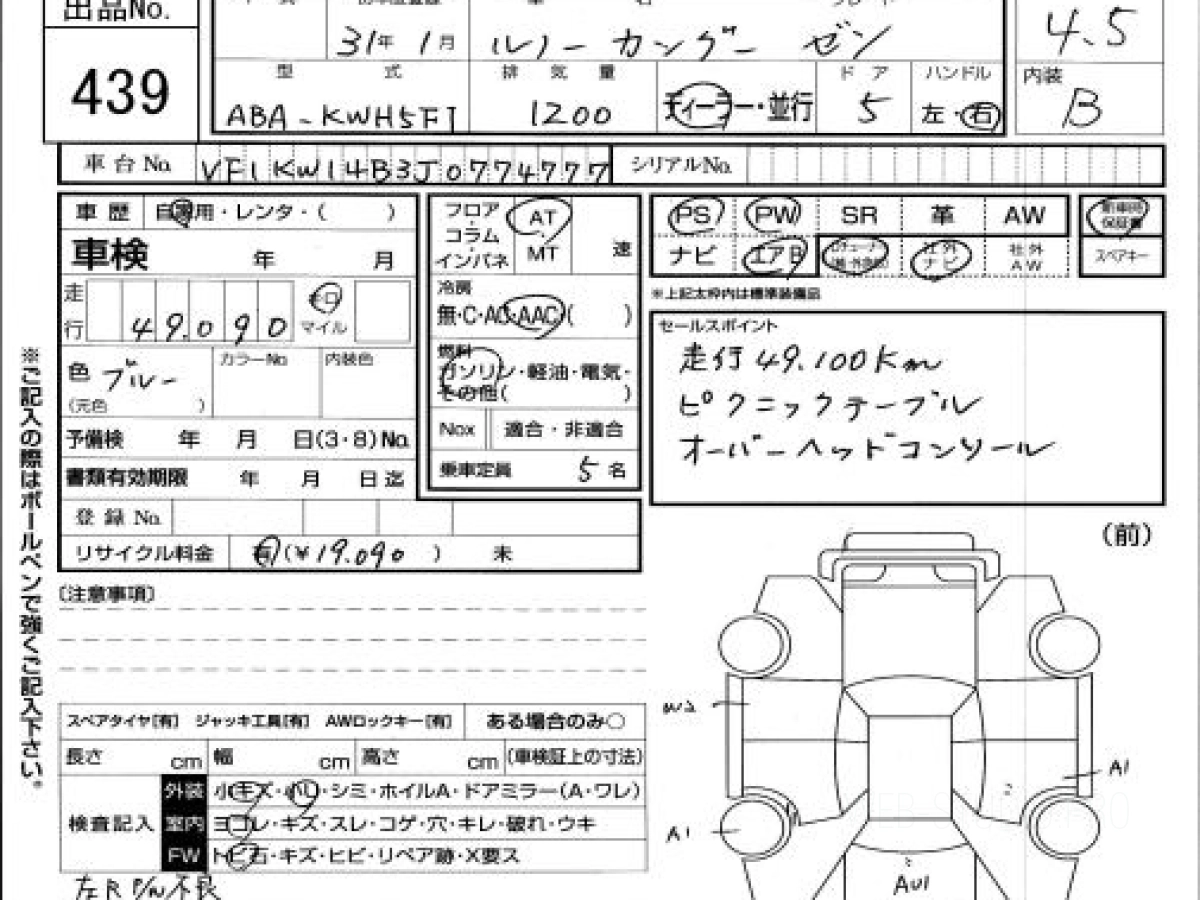 出品No.
439
31年 1月
ルノー カングー ゼン
4.5
型式
排気量
ドア
ハンドル
内装
ABA-KWH5F1
1200
ディーラー・並行
5
左・右
B
車台No.
VF1KW14B3J0774777
シリアルNo.
車歴
自家用・レンタ・( )
車検 年 月
走行
49.090
キロ
マイル
色 ブルー
(元色 )
カラーNo
内装色
予備検 年 月 日(3・8)No.
書類有効期限 年 月 日迄
登録No.
リサイクル料金
有(¥19.090 ) 未
フロア・コラム・インパネ
AT・MT
速
冷房
無・C・AC・AAC( )
燃料
ガソリン・軽油・電気・
その他( )
Nox 適合・非適合
乗車定員 5名
PS PW SR 革 AW
新車時保証書
ナビ エアB
社外ナビ
社外AW
スペアキー
※上記太枠内は標準装備品
セールスポイント
走行49.100Km
ピクニックテーブル
オーバーヘッドコンソール
※ご記入の際はボールペンで強くご記入下さい。
(注意事項)
スペアタイヤ[有] ジャッキ工具[有] AWロックキー[有] ある場合のみ○
長さ cm 幅 cm 高さ cm (車検証上の寸法)
検査記入
外装 小キズ・小凹・シミ・ホイルA・ドアミラー(A・ワレ)
室内 ヨゴレ・キズ・スレ・コゲ・穴・キレ・破れ・ウキ
FW トビ石・キズ・ヒビ・リペア跡・X要ス
左R P/W不良
(前)
W2
A1
A1
AU1